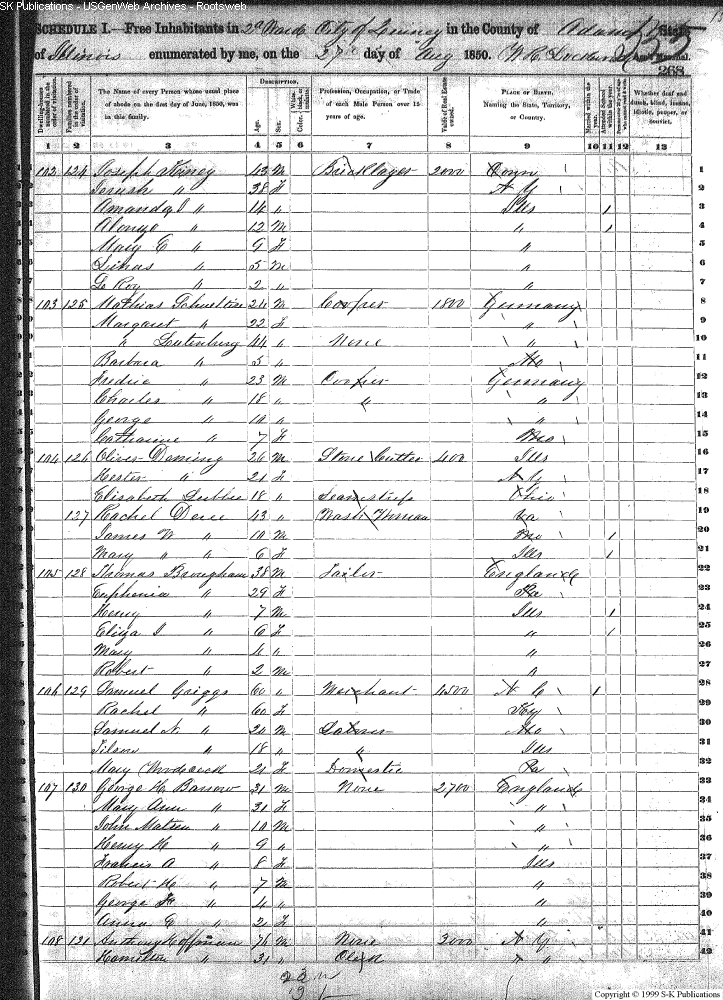 SK Publications - USGenWeb Archives - Rootsweb
SCHEDULE I.—Free Inhabitants in 2d Ward City of Quincy in the County of Adams State
of Illinois enumerated by me, on the 27th day of Aug 1850. Ass't Marshal.
268
Dwelling-houses numbered in the order of visitation. Families numbered in the order of visitation. The Name of every Person whose usual place of abode on the first day of June, 1850, was in this family. DESCRIPTION. Age. Sex. Color. Profession, Occupation, or Trade of each Male Person over 15 years of age. Value of Real Estate owned. PLACE OF BIRTH. Naming the State, Territory, or Country. Married within the year. Attended School within the year. Whether deaf and dumb, blind, insane, idiotic, pauper, or convict.
1 2 3 4 5 6 7 8 9 10 11 12 13
102 124 Joseph Kinney 43 M Bricklayer 2000 Conn 1
" 38 F N Y 2
Amanda J " 14 " Ills 1 3
Alonzo " 12 M " 1 4
Mary E " 9 F " 5
Linas " 5 M " 6
Le Roy " 2 " " 7
103 125 Mathias 24 M Cooper 1800 Germany 8
Margaret " 22 F " 9
" 44 " None " 10
Barbara " 5 " Mo 11
Fredric " 23 M Cooper Germany 12
Charles " 18 " " " 13
George " 10 " " 14
Catharine " 7 F Mo 15
104 126 Oliver Deming 26 M Stone Cutter 400 Ills 16
Hester " 21 F N Y 17
Elizabeth 18 " Seamstress Ohio 18
127 Rachel 43 " Wash Woman Va 19
James W " 10 M Mo 1 20
Mary " " 6 F Ills 1 21
105 128 Thomas Brougham 38 M Tailor England 22
Euphenia " 29 F Pa 23
Henry " 7 M Ills 1 24
Eliza J " 6 F " 1 25
Mary " 4 " " 26
Robert " 2 M " 27
106 129 Samuel Griggs 60 " Merchant 4500 N C 1 28
Rachel " 60 F Ky 29
Samuel N. " 20 M Laborer Mo 30
" 18 " " Ills 31
Mary Woodcock 21 F Domestic Pa 32
107 130 George H Barrow 31 M None 2700 England 33
Mary Ann " 31 F " 34
John " 10 M " 35
Henry H " 9 " " 36
Francis A " 8 F Ills 37
Robert H " 7 M " 38
George " 4 " " 39
Anna G " 2 F " 40
108 131 Anthony Hoffman 76 M None 3000 N Y 41
Hamilton " 31 " Clerk " " 42
Copyright © 1999 S-K Publications